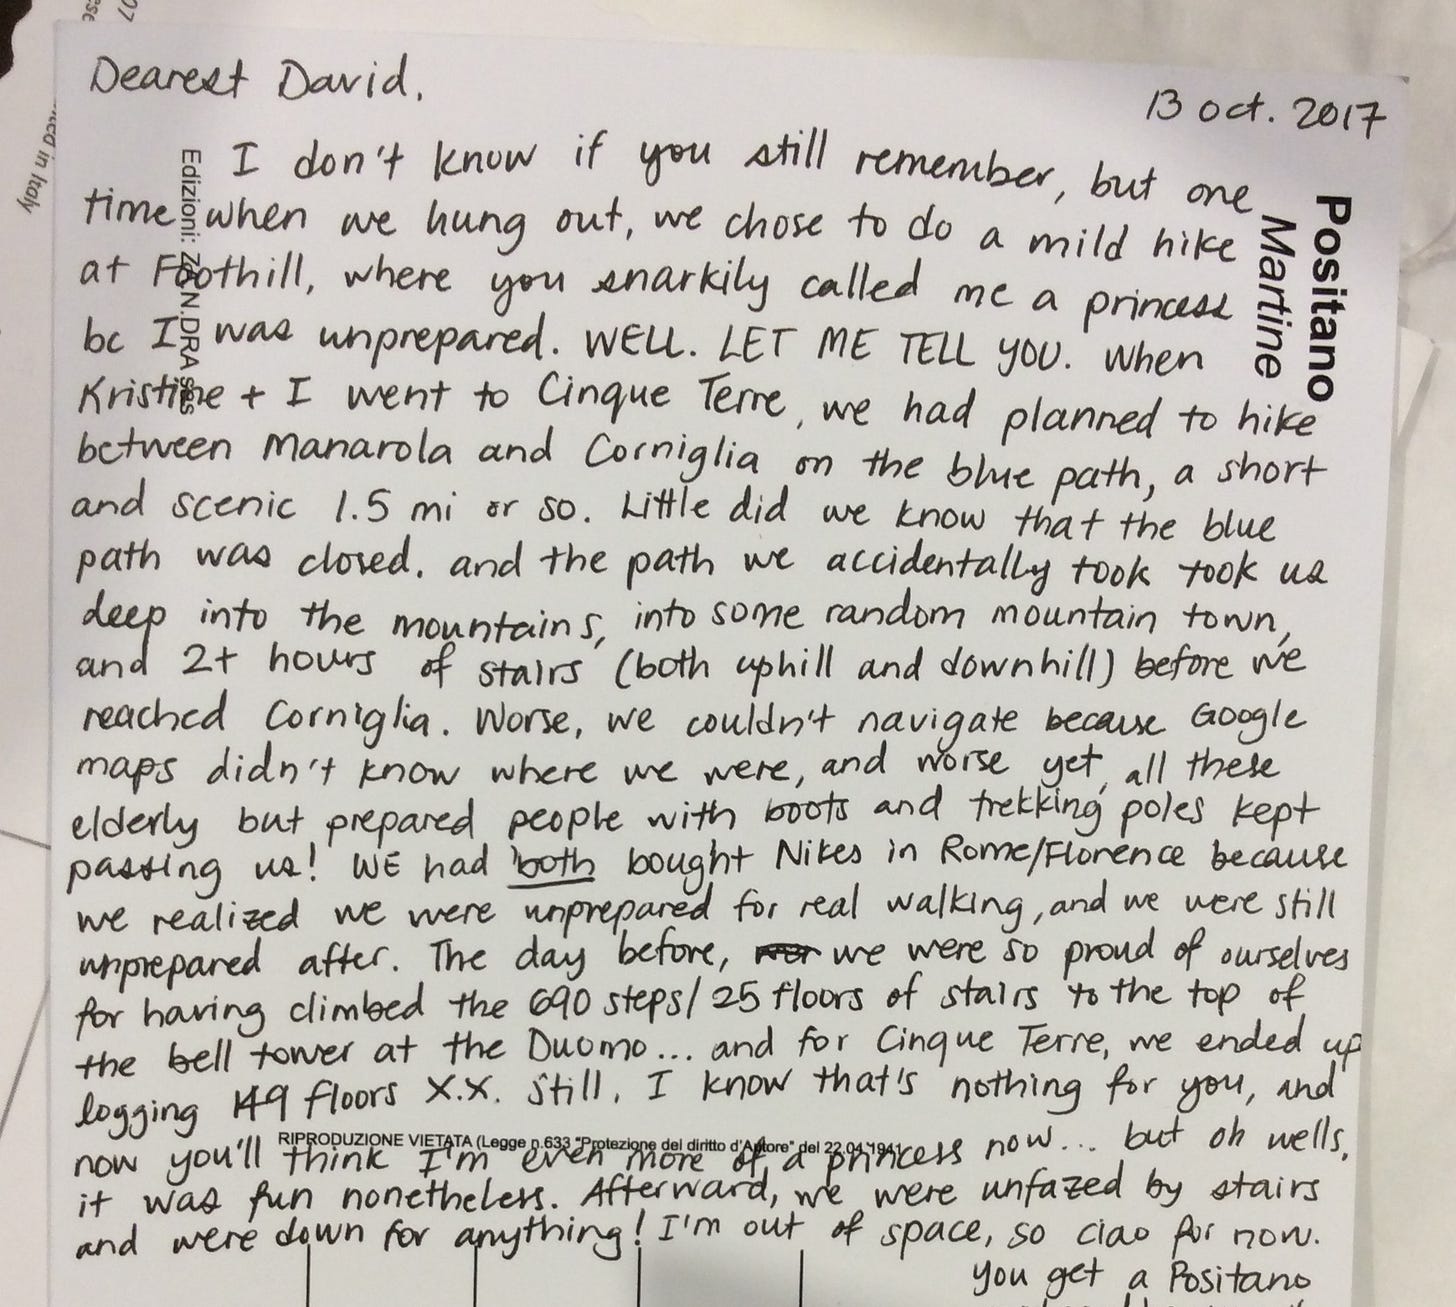 Dearest David,
13 oct. 2017
I don't know if you still remember, but one
time when we hung out, we chose to do a mild hike
at Foothill, where you snarkily called me a princess
bc I was unprepared. WELL. LET ME TELL YOU. When
Kristine + I went to Cinque Terre, we had planned to hike
between Manarola and Corniglia on the blue path, a short
and scenic 1.5 mi or so. Little did we know that the blue
path was closed. and the path we accidentally took took us
deep into the mountains, into some random mountain town,
and 2+ hours of stairs (both uphill and downhill) before we
reached Corniglia. Worse, we couldn't navigate because Google
maps didn't know where we were, and worse yet, all these
elderly but prepared people with boots and trekking poles kept
passing us! WE had both bought Nikes in Rome/Florence because
we realized we were unprepared for real walking, and we were still
unprepared after. The day before, we were so proud of ourselves
for having climbed the 690 steps/25 floors of stairs to the top of
the bell tower at the Duomo... and for Cinque Terre, we ended up
logging 149 floors X.X. Still, I know that's nothing for you, and
now you'll think I'm even more of a princess now... but oh wells,
it was fun nonetheless. Afterward, we were unfazed by stairs
and were down for anything! I'm out of space, so ciao for now.
You get a Positano
Positano
Martine
Edizioni: sas
RIPRODUZIONE VIETATA (Legge n.633 "Protezione del diritto d'Autore" del 22.04.1941
in Italy
07